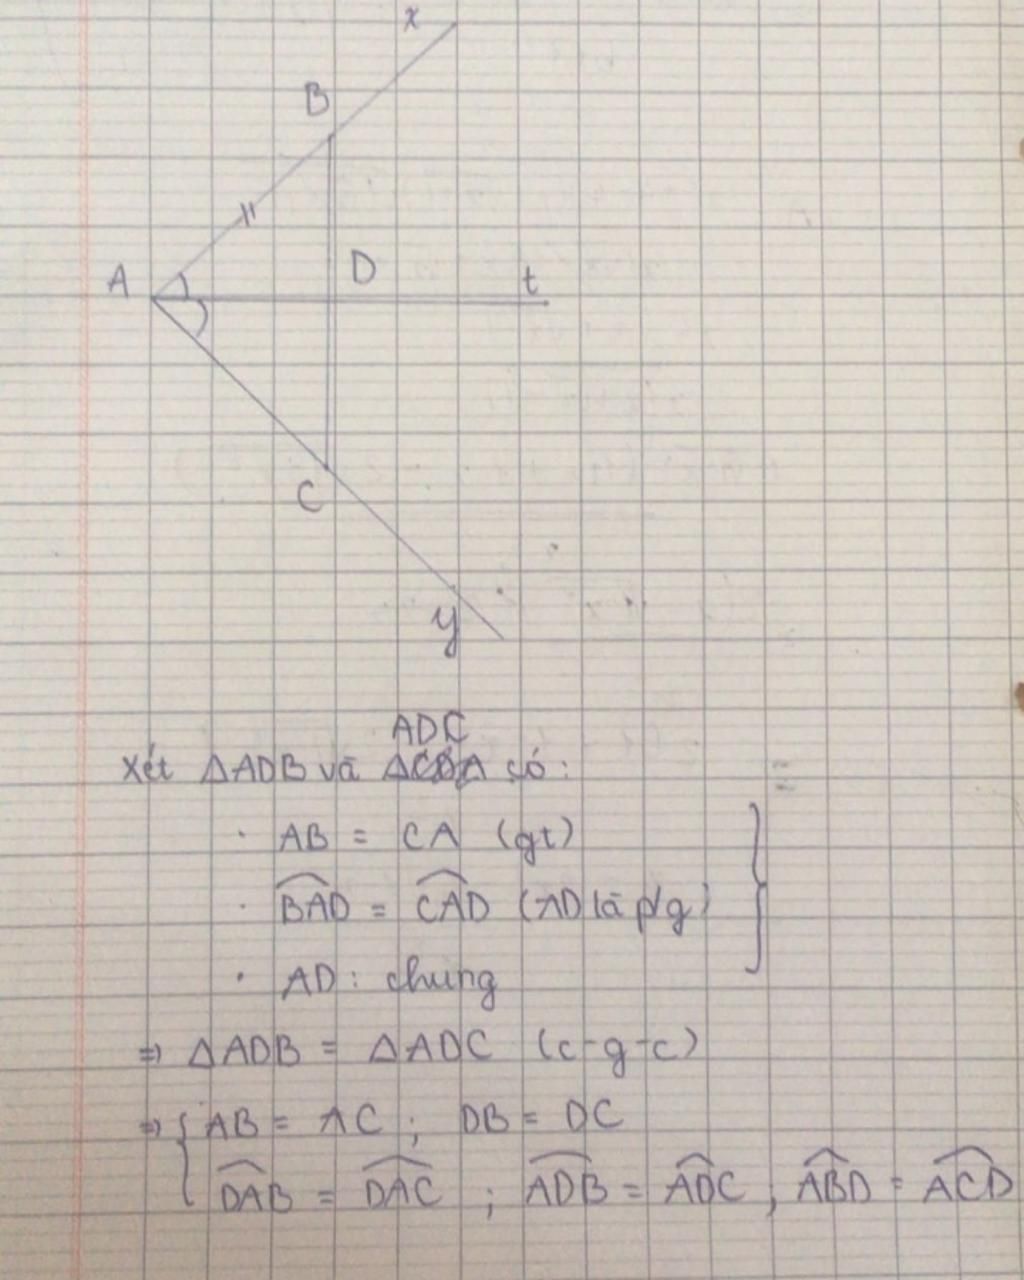 x
B
A
D
t
C
y
ADC
Xét ΔADB và Δ có:
· AB = CA (gt)
· \widehat{BAD} = \widehat{CAD} (AD là p/g)
· AD: chung
=> ΔADB = ΔADC (c-g-c)
=> { AB = AC ; DB = DC
\widehat{DAB} = \widehat{DAC} ; \widehat{ADB} = \widehat{ADC} , \widehat{ABD} = \widehat{ACD}